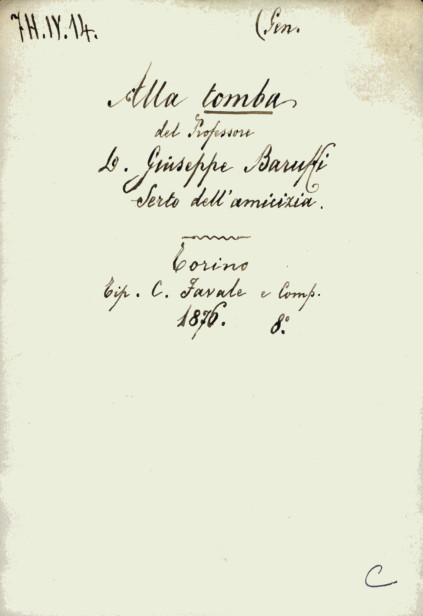 7H.IV.14. (Gen.
Alla tomba
del Professore
D. Giuseppe Baruffi
Serto dell'amicizia.
Torino
Tip. C. Favale e Comp.
1876. 8.°
C